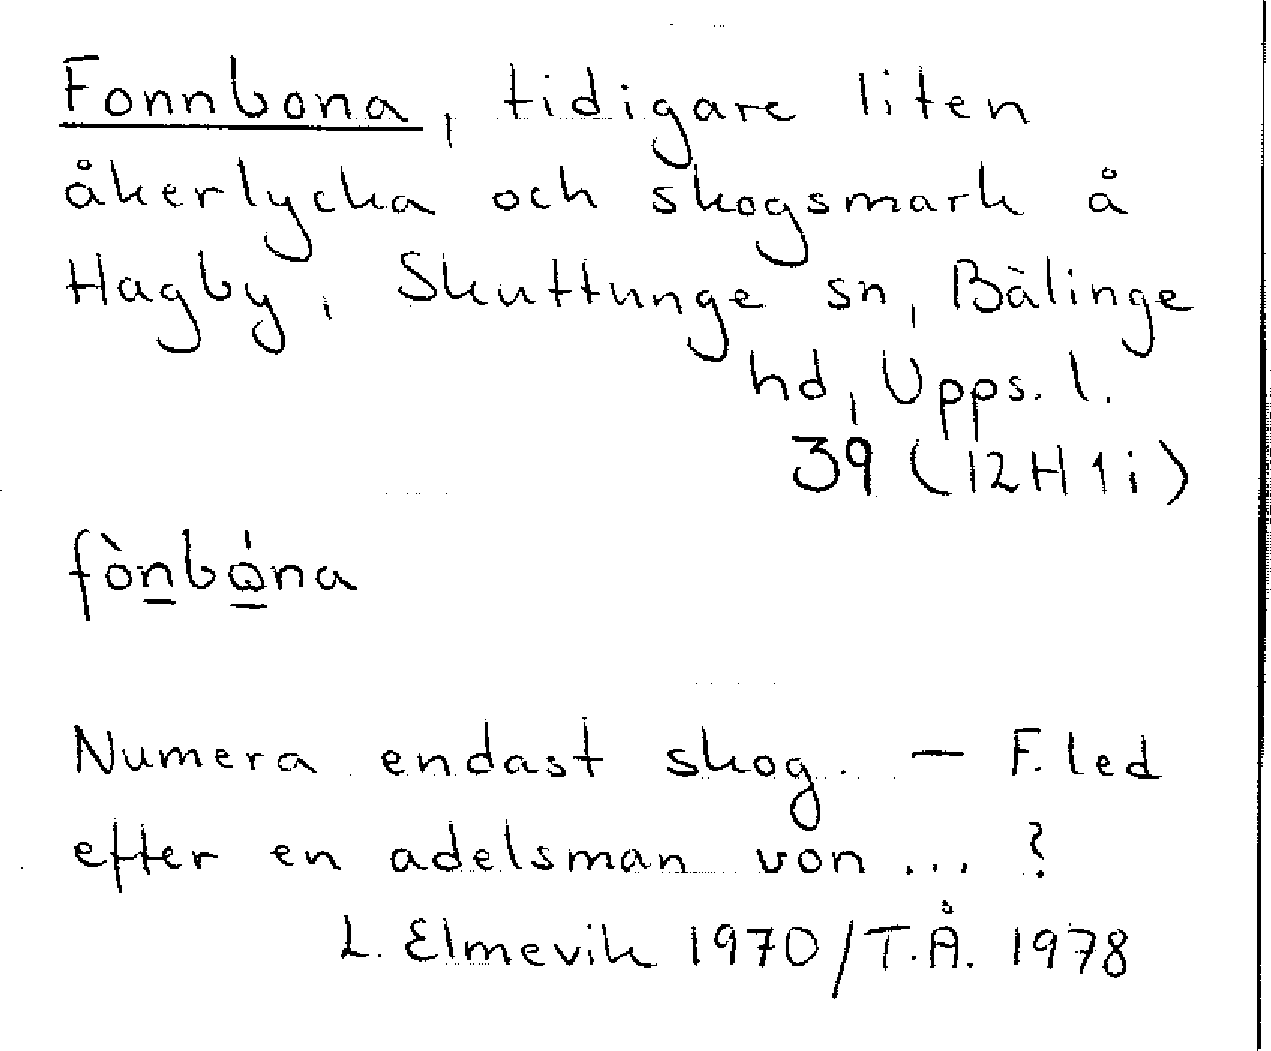 Fonnbona, tidigare liten
åkerlycka och skogsmark å
Hagby, Skuttunge sn, Bälinge
hd, Upps. l.
39 (12H1i)
fònbǫ́na
Numera endast skog. — F. led
efter en adelsman von ... ?
L. Elmevik 1970/T.Å. 1978